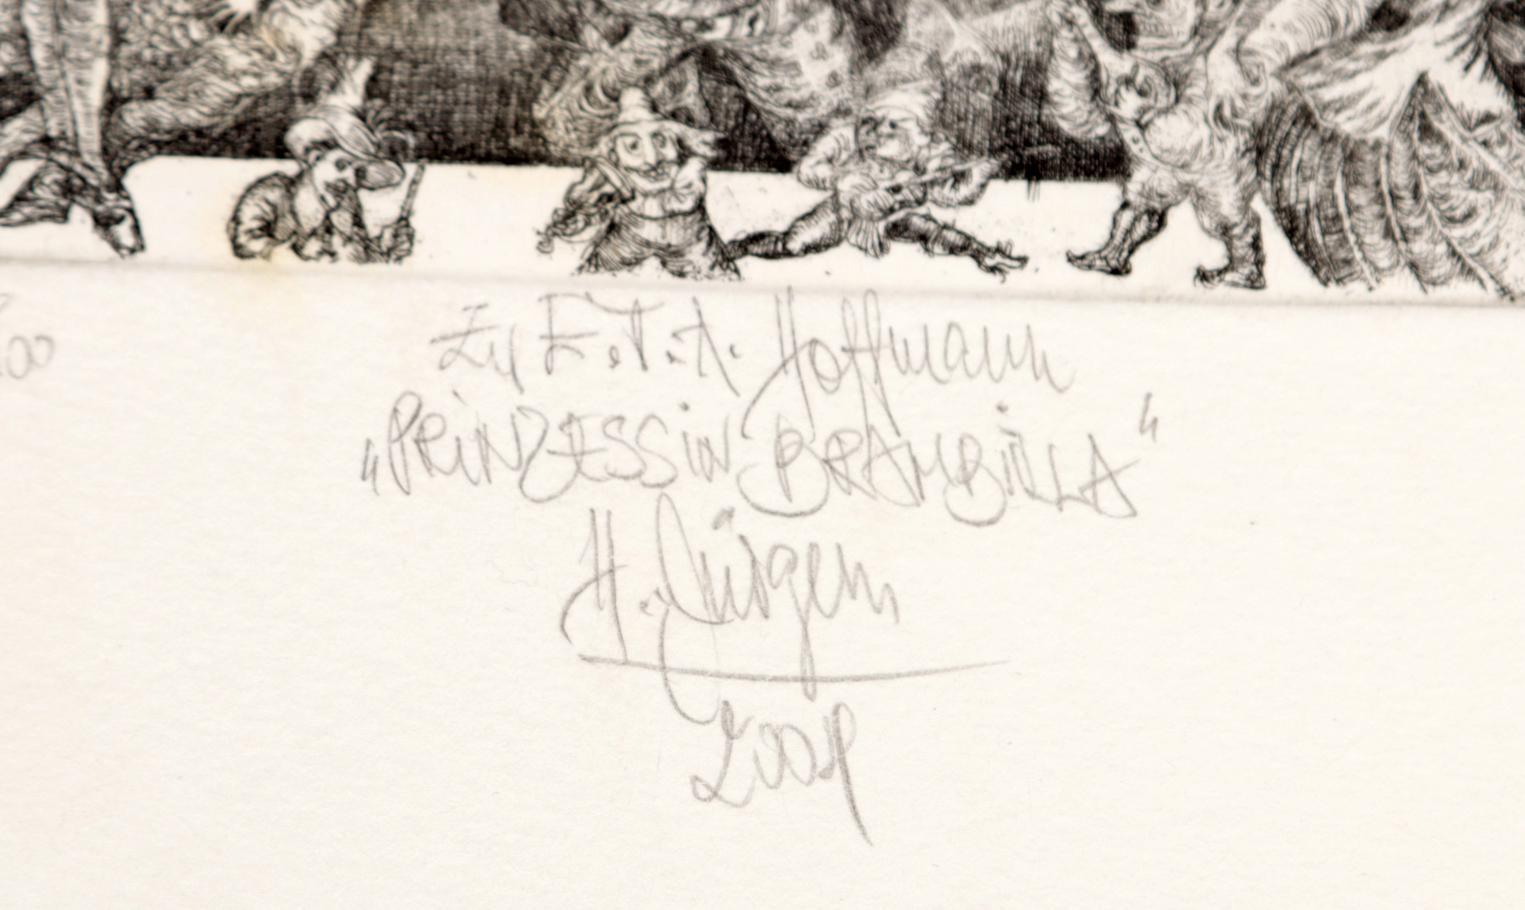 Zu E.T.A. Hoffmann
„PRiNZESSiN BRAMBiLLA“
H. Jürgens